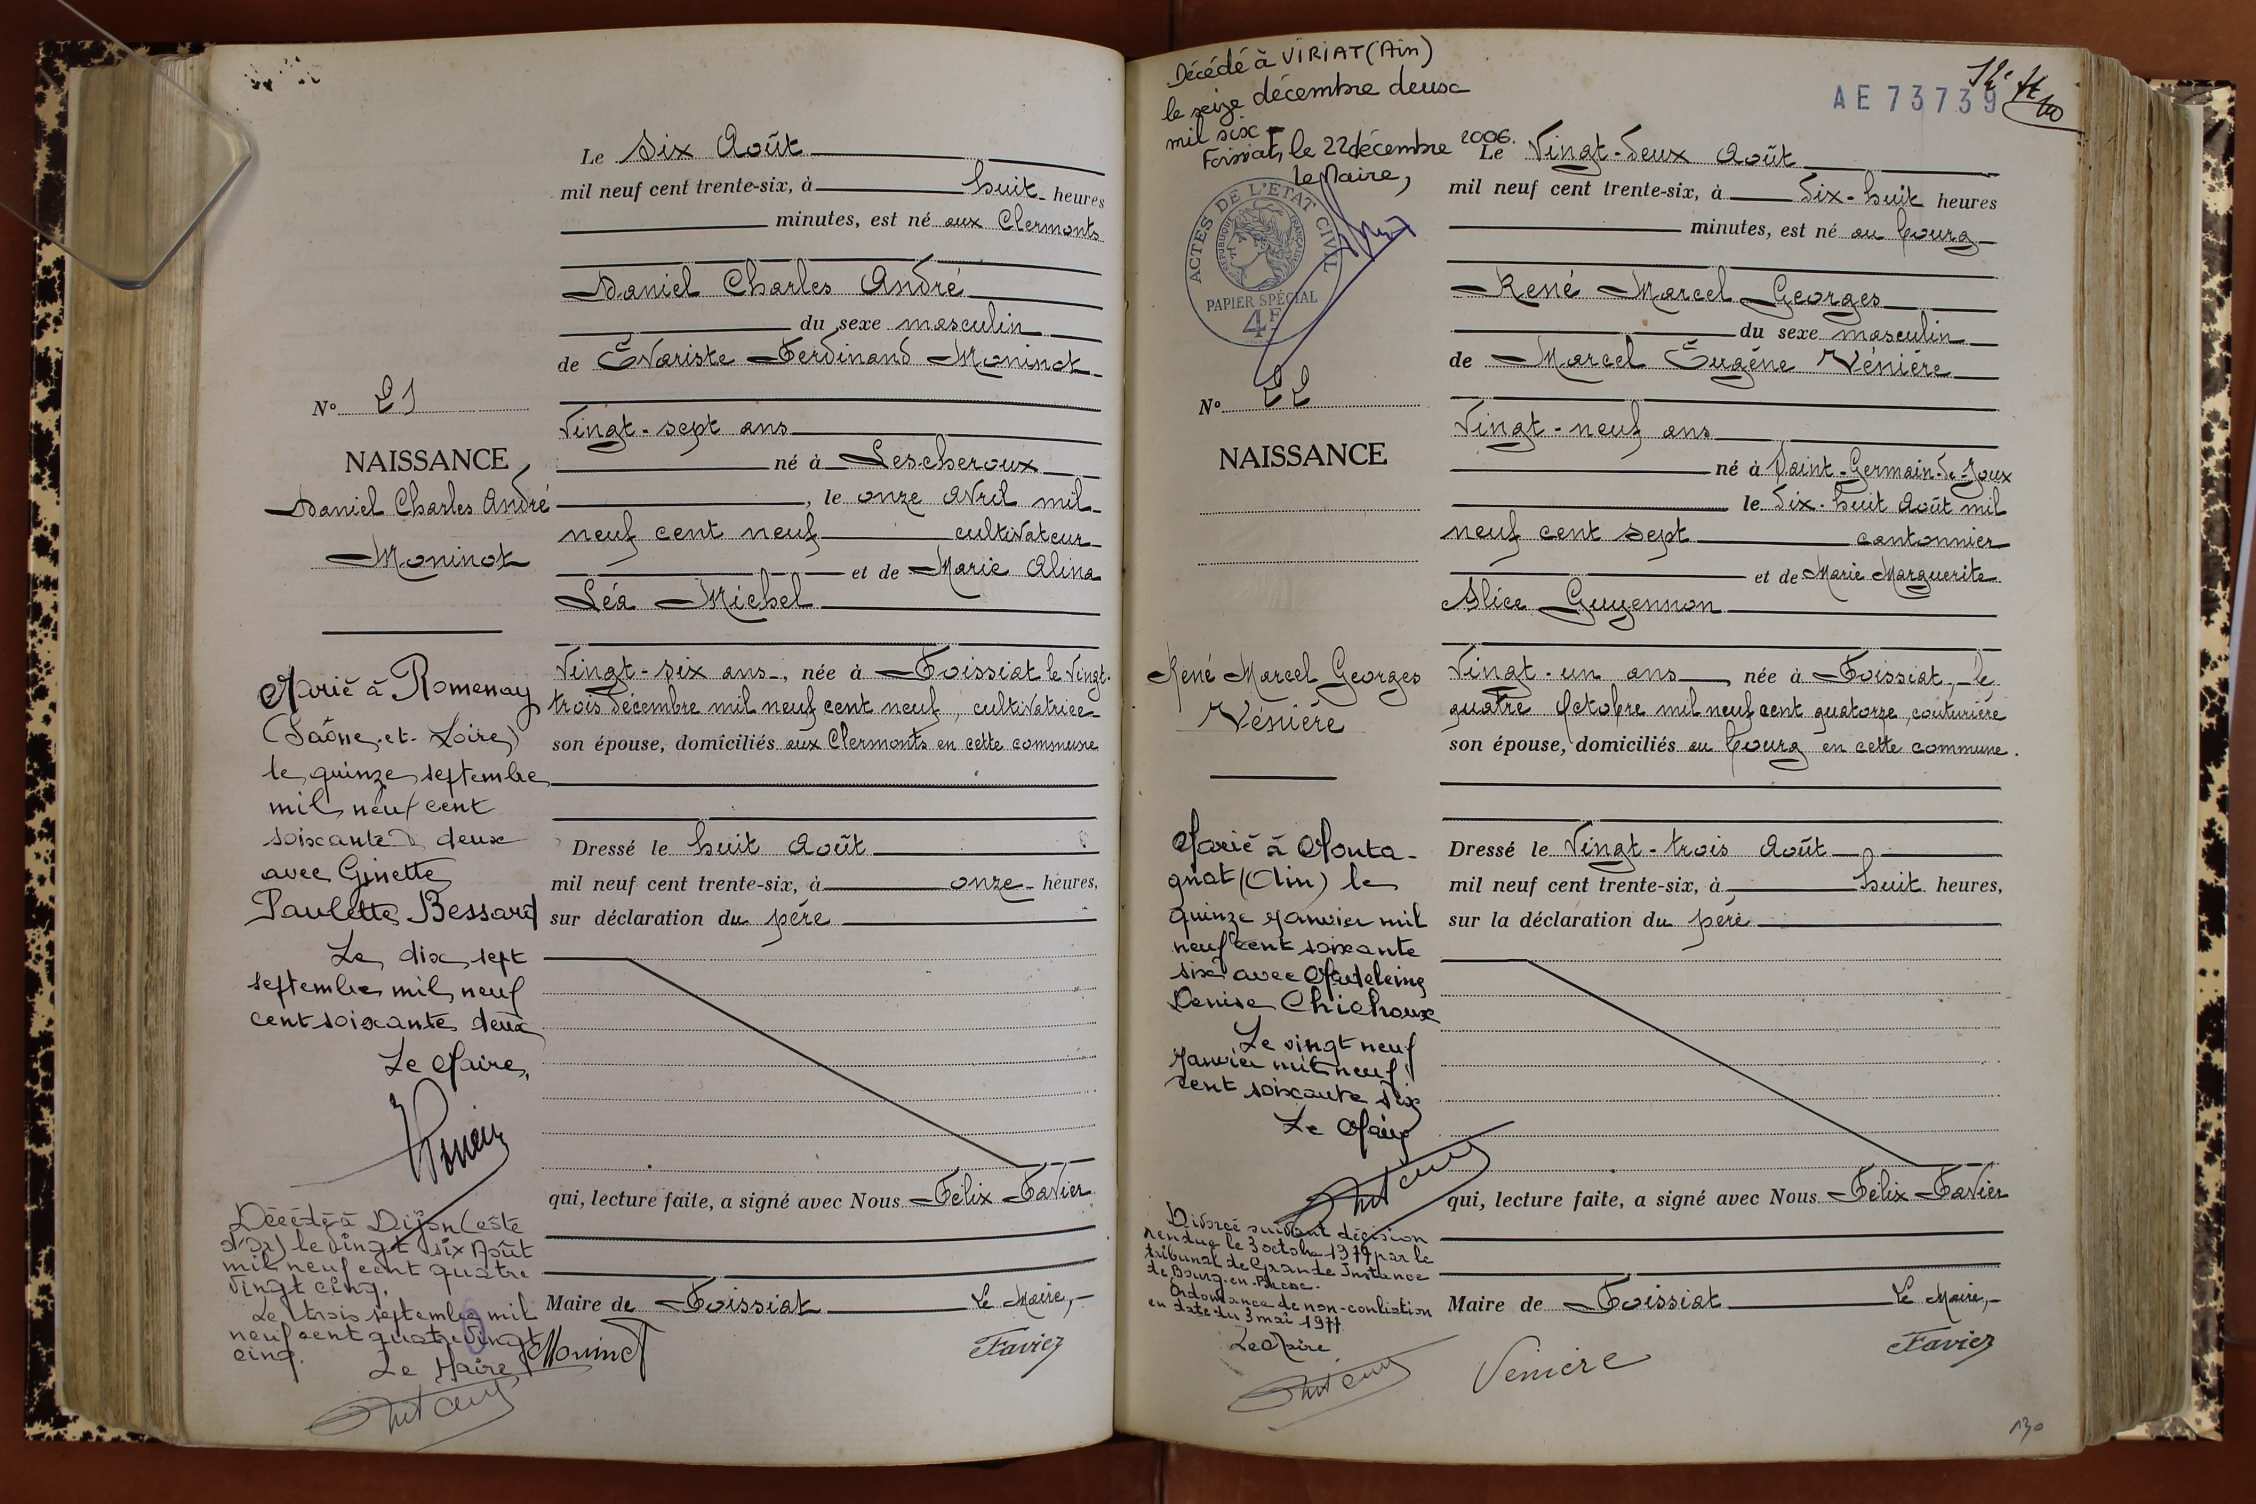 Le Six Août
mil neuf cent trente-six, à huit heures
minutes, est né aux Clermonts
Daniel Charles André
du sexe masculin
de Évariste Ferdinand Moninot
Vingt-sept ans
né à Lescheroux
, le onze avril mil
neuf cent neuf cultivateur
et de Marie Alina
Léa Michel
Vingt-six ans, née à Foissiat le Vingt-
trois décembre mil neuf cent neuf, cultivatrice
son épouse, domiciliés aux Clermonts en cette commune
Dressé le huit Août
mil neuf cent trente-six, à onze heures,
sur déclaration du père
qui, lecture faite, a signé avec Nous Félix Favier
Maire de Foissiat Le Maire,
Moninot Favier
No 21
NAISSANCE
Daniel Charles André
Moninot
Marié à Romenay
(Saône-et-Loire)
le quinze septembre
mil neuf cent
soixante deux
avec Ginette
Paulette Bessard
Le dix sept
septembre mil neuf
cent soixante deux
Le Maire,
Décédé à Dijon (Côte
d'Or) le vingt six Août
mil neuf cent quatre
vingt cinq.
Le trois septembre mil
neuf cent quatre vingt
cinq.
Le Maire
Décédé à VIRIAT (Ain)
le seize décembre deux
mil six
Foissiat, le 22 décembre 2006.
Le Maire,
AE 73739
ACTES DE L'ETAT CIVIL
REPUBLIQUE FRANÇAISE
PAPIER SPÉCIAL
4F
Le Vingt-deux Août
mil neuf cent trente-six, à dix-huit heures
minutes, est né au bourg
René Marcel Georges
du sexe masculin
de Marcel Eugène Vénière
Vingt-neuf ans
né à Saint-Germain-de-Joux
le dix-huit Août mil
neuf cent sept cantonnier
et de Marie Marguerite
Alice Guyennon
Vingt-un ans, née à Foissiat, le
quatre Octobre mil neuf cent quatorze, couturière
son épouse, domiciliés au bourg en cette commune.
Dressé le Vingt-trois Août
mil neuf cent trente-six, à huit heures,
sur la déclaration du père
qui, lecture faite, a signé avec Nous Félix Favier
Maire de Foissiat Le Maire,
Veniere Favier
No 22
NAISSANCE
René Marcel Georges
Vénière
Marié à Monta-
gnat (Ain) le
quinze Janvier mil
neuf cent soixante
six avec Madeleine
Denise Chichoux
Le vingt neuf
Janvier mil neuf
cent soixante six
Le Maire
Divorcé suivant décision
rendue le 3 octobre 1977 par le
tribunal de Grande Instance
de Bourg-en-Bresse.
Ordonnance de non-conciliation
en date du 3 mai 1977
Le Maire
130